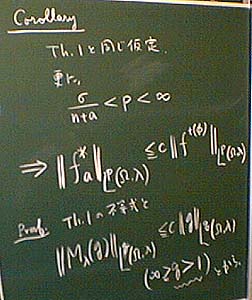 Corollary
Th. 1 と同じ仮定.
更に,
σ/(n+a) < p < ∞
⇒ ‖f*a‖L^p(Ω,λ) ≦ c ‖f^(φ)‖L^p(Ω,λ)
Proof. Th. 1 の不等式と
‖Mλ(g)‖L^q(Ω,λ) ≦ c‖g‖L^q(Ω,λ)
(∞ ≧ q > 1)